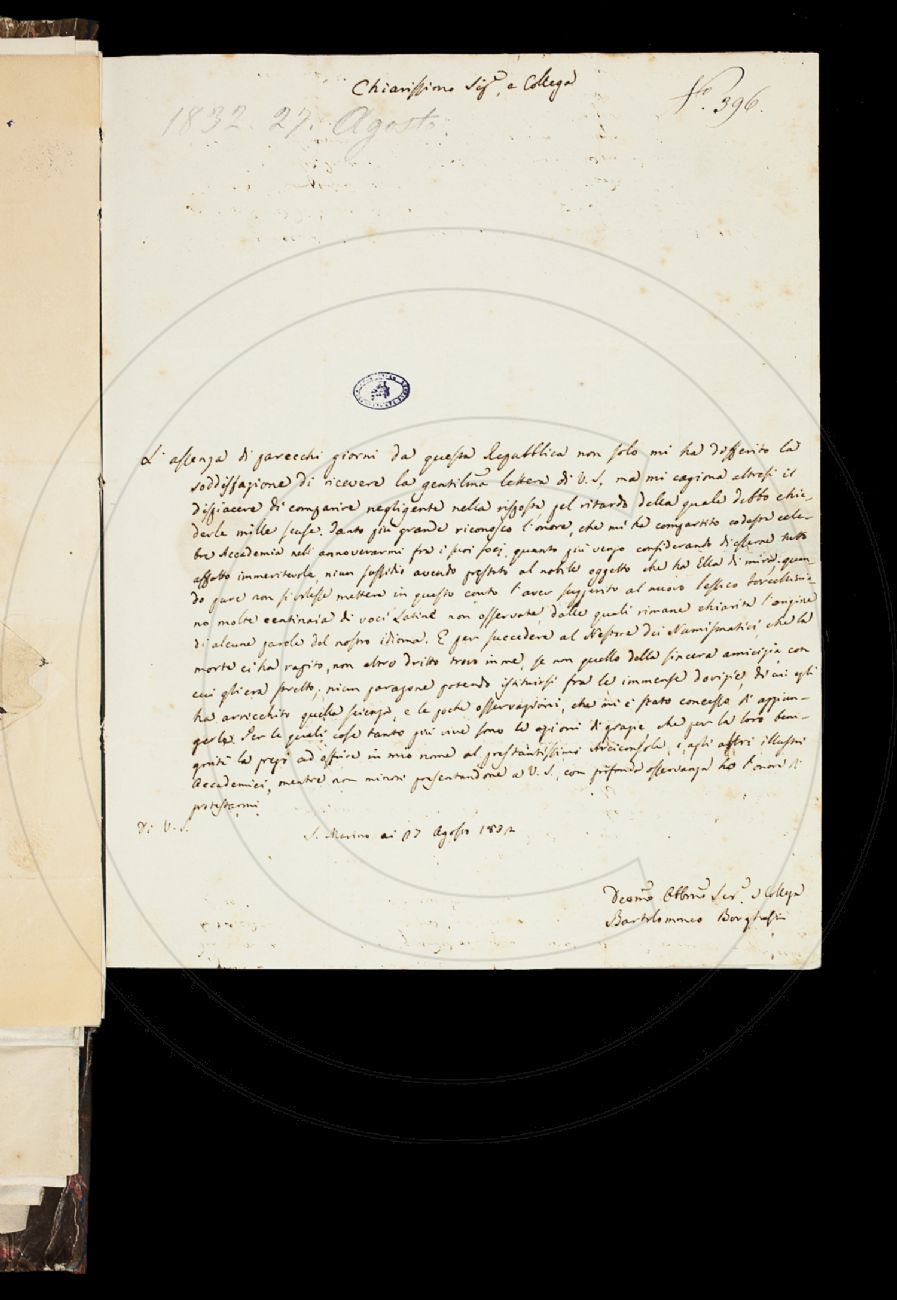 Chiarissimo Sigr. e Collega
No. 396.
1832. 27. Agosto
L'assenza di parecchi giorni da questa Repubblica non solo mi ha differito la
soddisfazione di ricevere la gentilma lettera di V. S. ma mi cagiona altresì il
dispiacere di comparire negligente nella risposta, pel ritardo della quale debbo chie-
derle mille scuse. Tanto più grande riconosco l'onore, che mi ha compartito codesta cele-
bre Accademia nell'annoverarmi fra i suoi socj, quanto più vengo considerando di esserne tutto
affatto immeritevole, niun sussidio avendo prestato al nobile oggetto che ha Ella di mira, quan-
do pure non si volesse mettere in questo conto l'aver suggerito al nuovo lessico Forcellinia-
no molte centinaia di voci Latine non osservate, dalle quali rimane chiarita l'origine
di alcune parole del nostro idioma. E per succedere al Nestore dei Numismatici, che la
morte ci ha rapito, non altro dritto trovo in me, se non quello della sincera amicizia, con
cui gli era stretto; niun paragone potendo istituirsi fra le immense dovizie, di cui egli
ha arricchito quella scienza, e le poche osservazioni, che mi è stato concesso di aggiun-
gerle. Per le quali cose tanto più vive sono le azioni di grazie che per la loro beni-
gnità la prego ad offrire in mio nome al prestantissimo Arciconsolo, e agli altri illustri
Accademici, mentre non minori presentandone a V. S. con profonda osservanza ho l'onore di
protestarmi
Di V. S.
S. Marino ai 27 Agosto 1832
Devmo Obbmo Serv. e Collega
Bartolommeo Borghesi